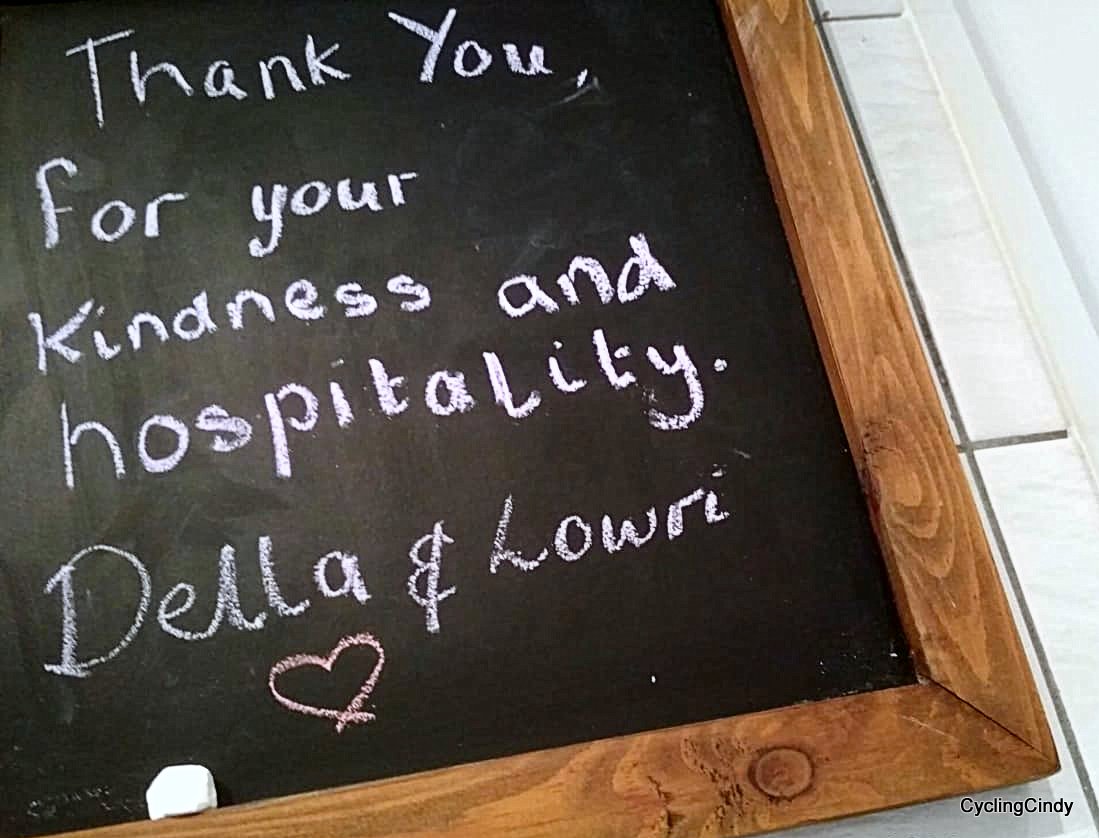 Thank You,
for your
kindness and
hospitality.
Della & Lowri
CyclingCindy